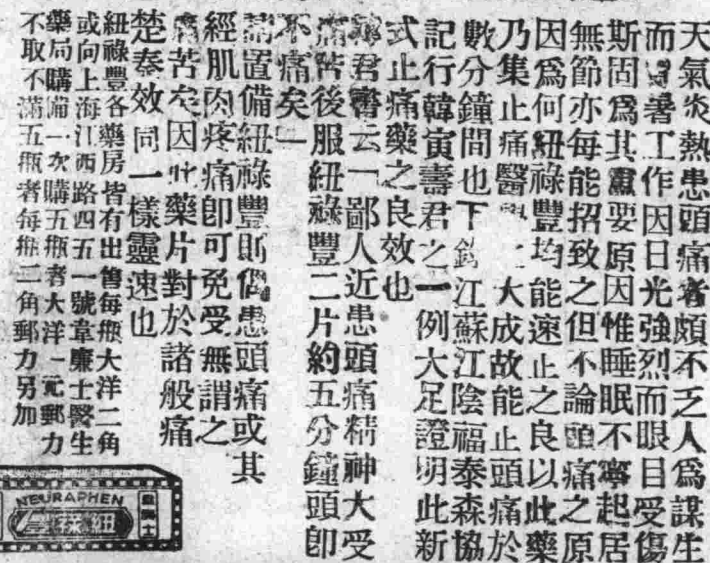 天氣炎熱患頭痛者頗不乏人爲謀生
而冒暑工作因日光強烈而眼目受傷
斯固爲其重要原因惟睡眠不寧起居
無節亦每能招致之但不論頭痛之原
因爲何紐祿豐均能速止之良以此藥
乃集止痛醫大成故能止頭痛於
數分鐘間也下江蘇江陰福泰森協
記行韓寅壽君之一例大足證明此新
式止痛藥之良效也
君書云「鄙人近患頭痛精神大受
痛苦後服紐祿豐二片約五分鐘頭即
不痛矣」
請置備紐祿豐則偶患頭痛或其
經肌肉疼痛即可免受無謂之
痛苦矣因此藥片對於諸般痛
楚奏效同一樣靈速也
紐祿豐各藥房皆有出售每瓶大洋二角
或向上海江西路四五一號韋廉士醫生
藥局購備一次購五瓶者大洋一元郵力
不取不滿五瓶者每瓶二角郵力另加
NEURAPHEN
紐祿豐
韋廉士